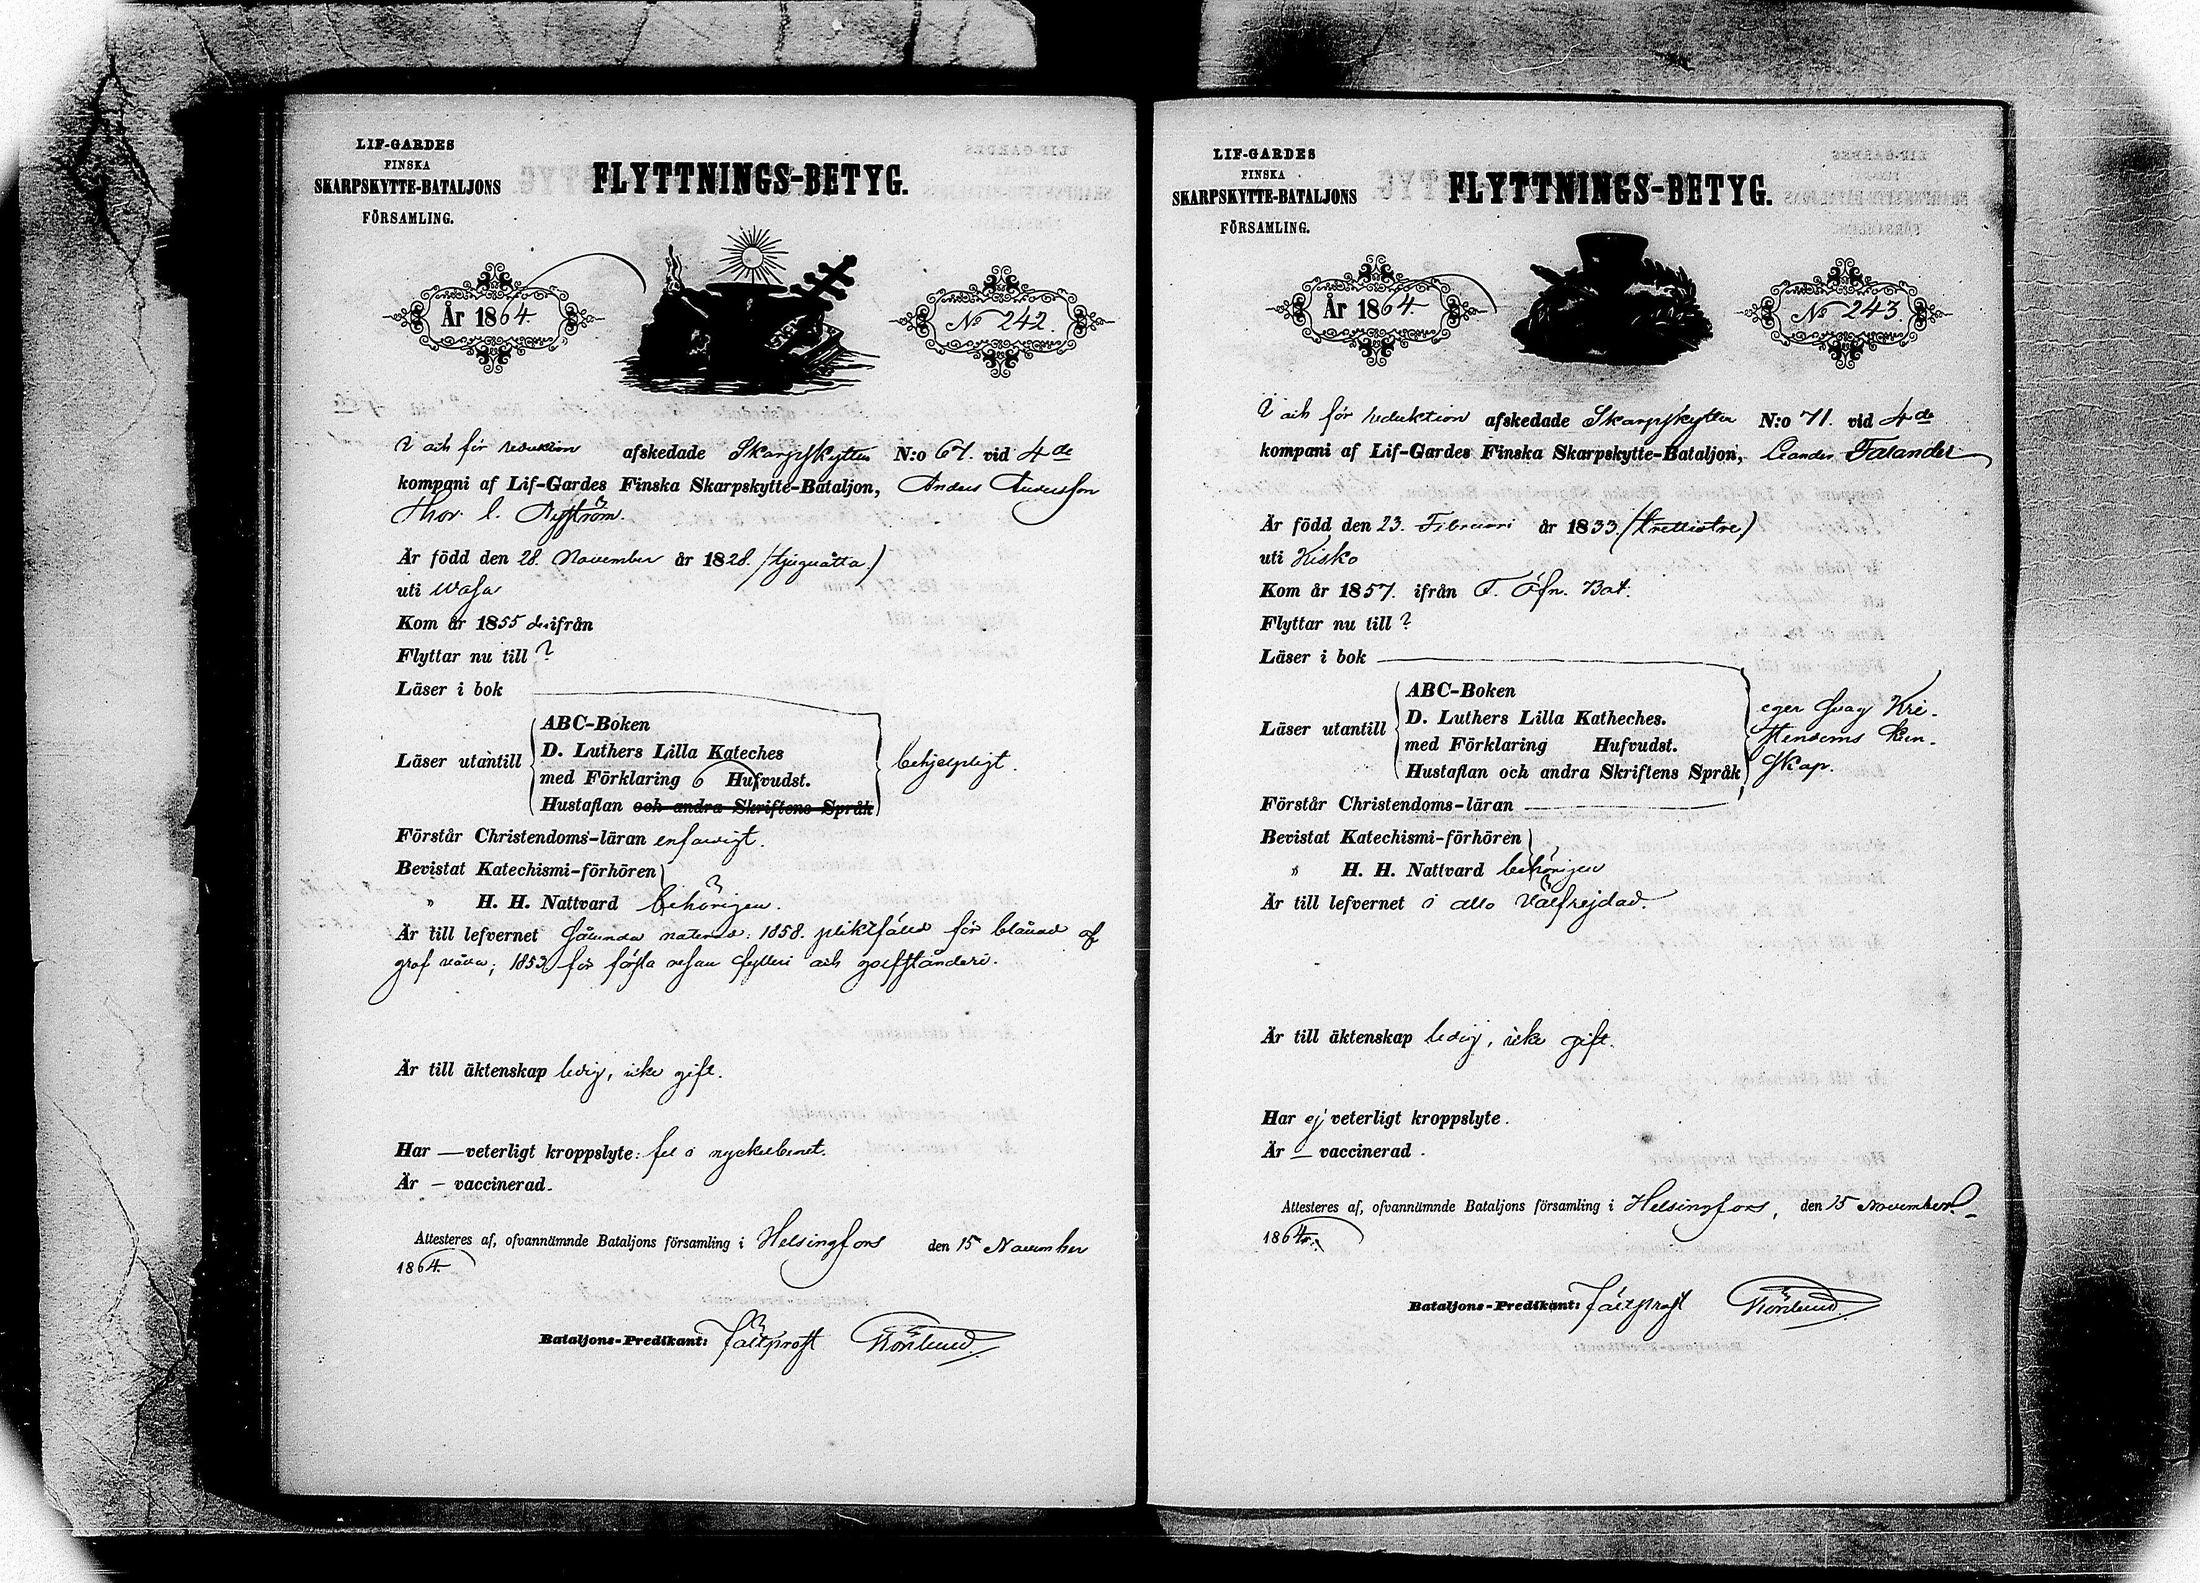 LIF-GARDES
FINSKA
SKARPSKYTTE-BATALJONS
FÖRSAMLING.
FLYTTNINGS-BETYG.
År 1864.
No 242.
och för reduktion afskedade Skarpskytten N:o 67. vid 4de
kompani af Lif-Gardes Finska Skarpskytte-Bataljon, Anders Andersson
Nyström.
Är född den 28. November år 1828. (tjuguåtta.)
uti Wasa
Kom år 1855 ifrån
Flyttar nu till ?
Läser i bok
Läser utantill
ABC-Boken
D. Luthers Lilla Kateches
med Förklaring 6 Hufvudst.
Hustaflan och andra Skriftens Språk
behjelpligt.
Förstår Christendoms-läran enfaldigt.
Bevistat Katechismi-förhören
" H. H. Nattvard behörigen.
Är till lefvernet 1858. pliktfälld för af
grof 1853 för första resan fylleri och
Är till äktenskap ledig, icke gift.
Har — veterligt kroppslyte: fel i nyckelbenet.
Är — vaccinerad.
Attesteres af, ofvannämnde Bataljons församling i Helsingfors den 15 November
1864.
Bataljons-Predikant: Fältprost
LIF-GARDES
FINSKA
SKARPSKYTTE-BATALJONS
FÖRSAMLING.
FLYTTNINGS-BETYG.
År 1864.
No 243.
och för reduktion afskedade Skarpskytten N:o 71. vid 4de
kompani af Lif-Gardes Finska Skarpskytte-Bataljon, Leander Falander
Är född den 23. Februari år 1833. (trettiotre)
uti Kisko
Kom år 1857. ifrån Bat.
Flyttar nu till ?
Läser i bok
Läser utantill
ABC-Boken
D. Luthers Lilla Katheches.
med Förklaring Hufvudst.
Hustaflan och andra Skriftens Språk
eger svag Kri-
stendoms kun-
skap.
Förstår Christendoms-läran
Bevistat Katechismi-förhören
" H. H. Nattvard behörigen
Är till lefvernet i allo välfrejdad.
Är till äktenskap ledig, icke gift.
Har ej veterligt kroppslyte.
Är — vaccinerad.
Attesteres af, ofvannämnde Bataljons församling i Helsingfors, den 15 November
1864.
Bataljons-Predikant: Fältprost